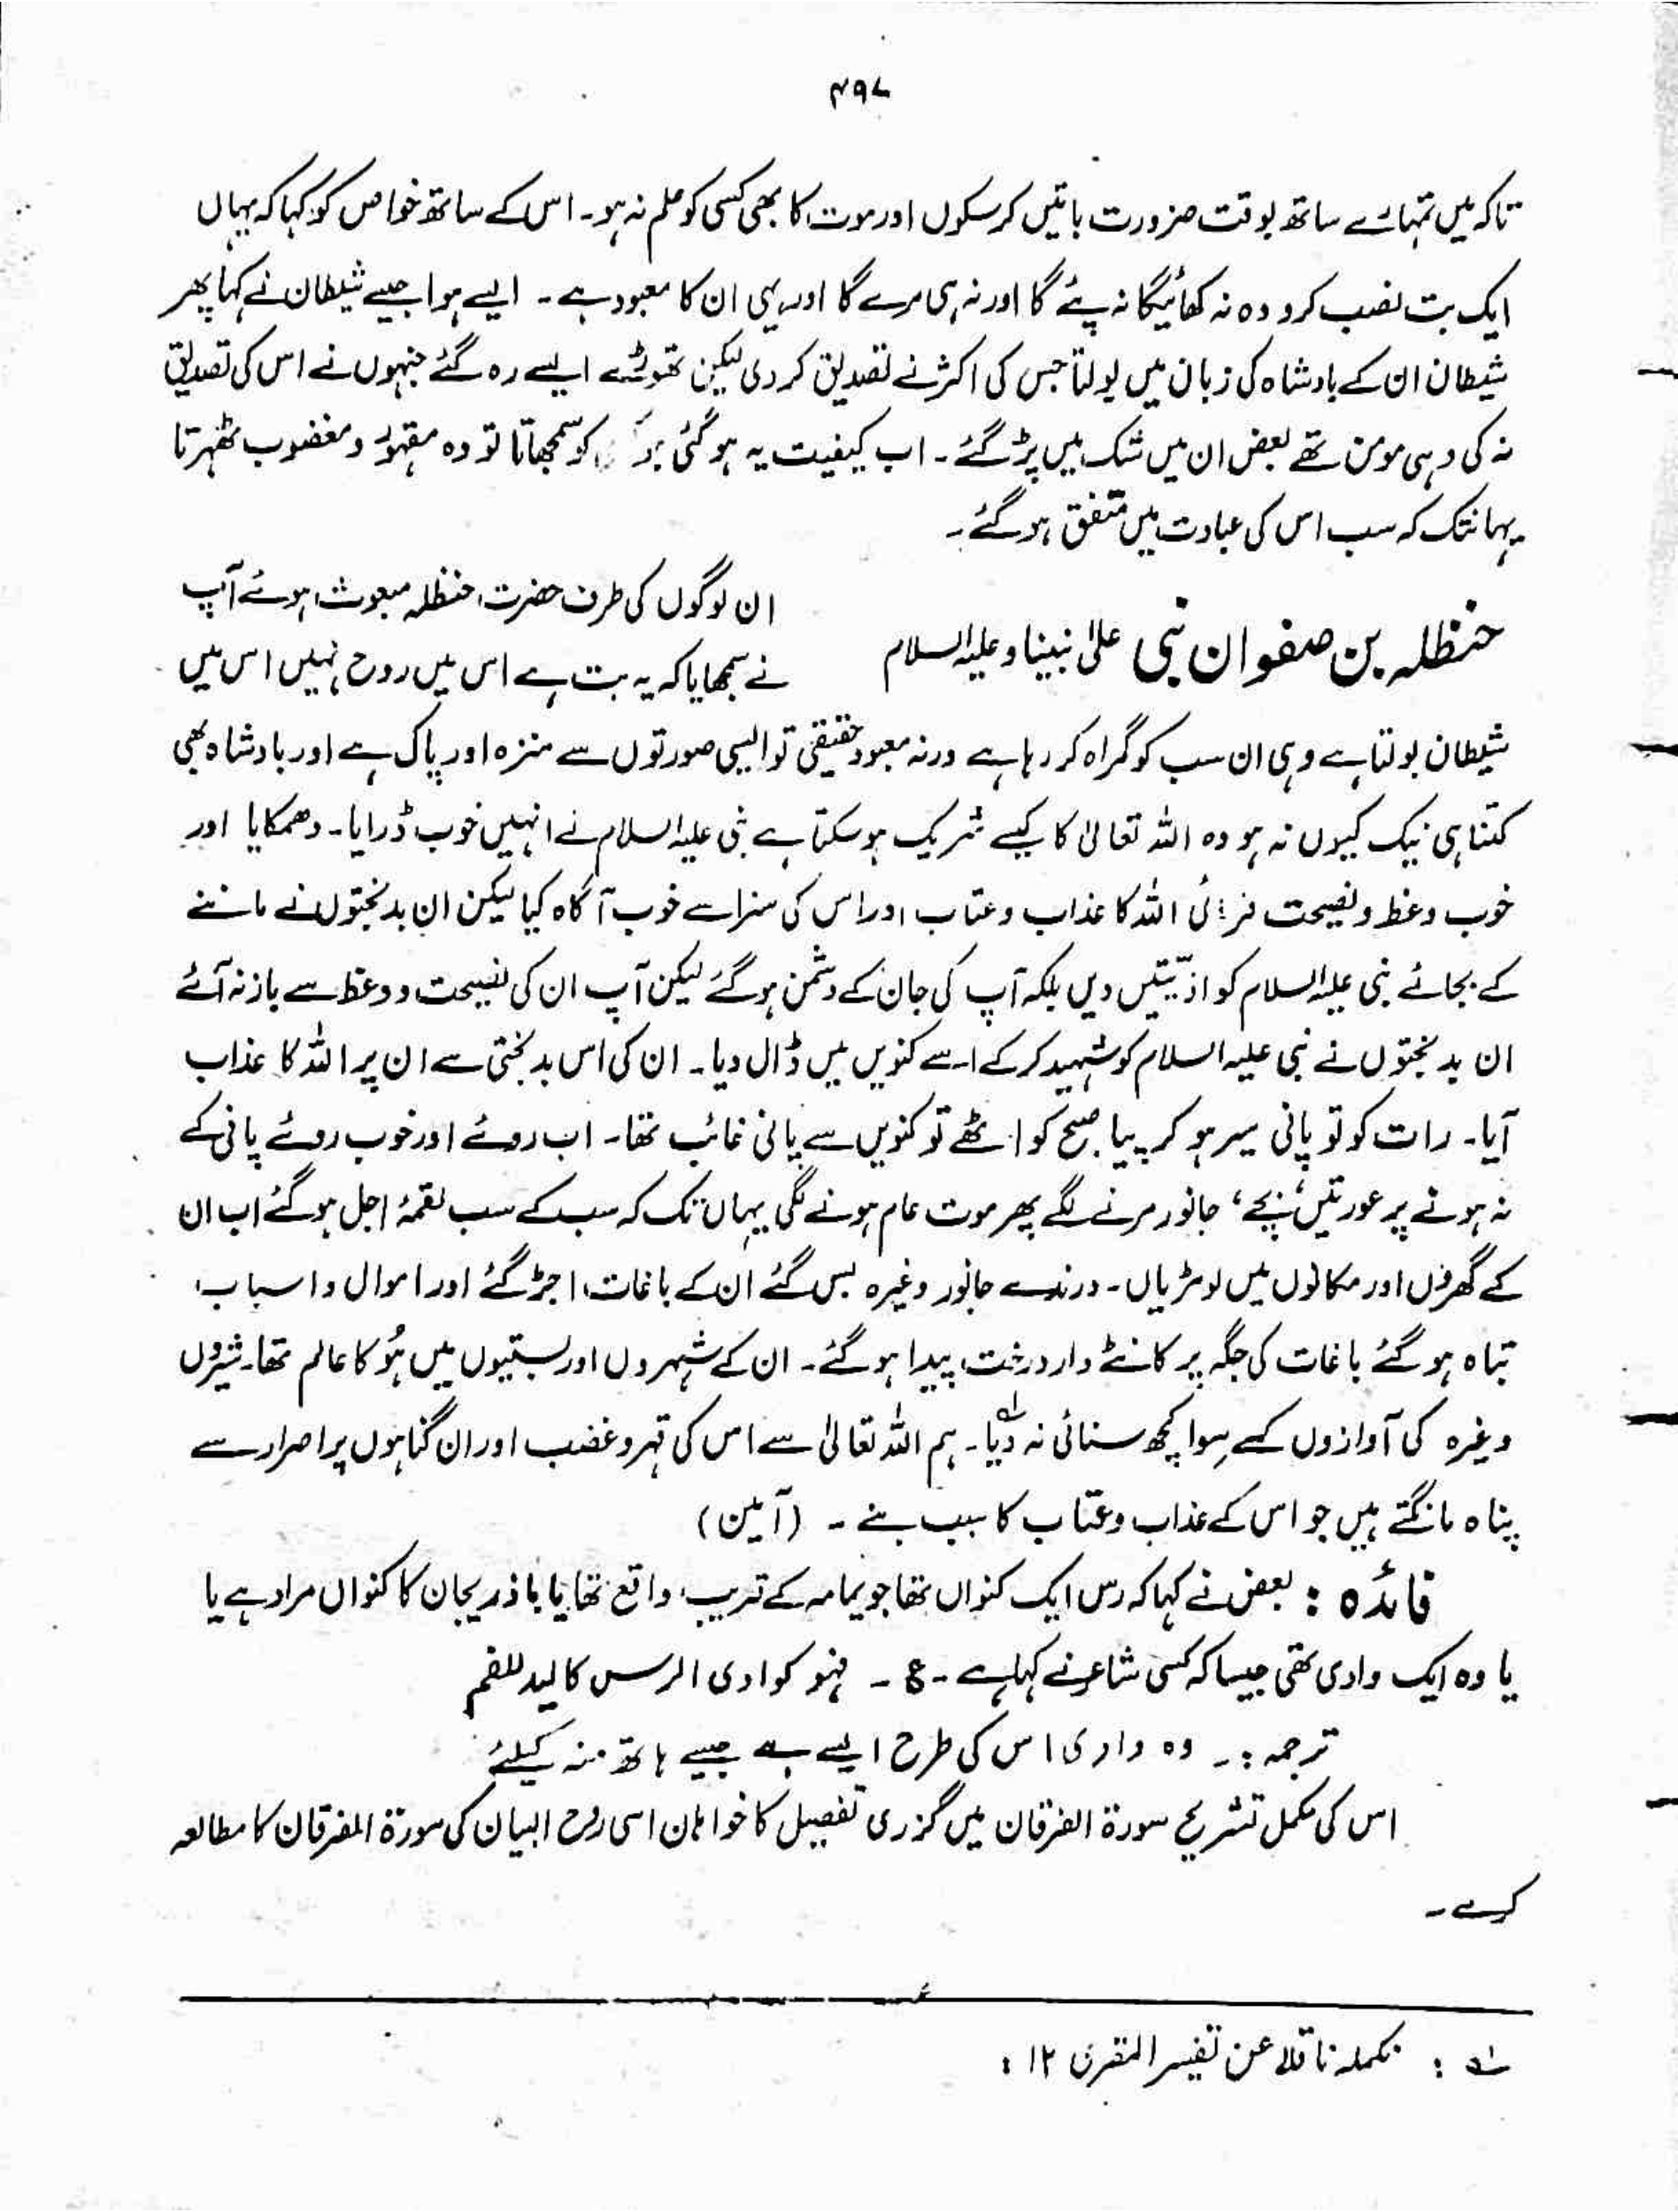 ۴۹۷
تاکہ میں تمہارے ساتھ بوقت ضرورت باتیں کرسکوں اور موت کا بھی کسی کو علم نہ ہو۔ اس کے ساتھ خواص کو کہا کہ یہاں
ایک بت نصب کرو وہ نہ کھائیگا نہ پئے گا اور نہ ہی مرے گا اور یہی ان کا معبود ہے۔ ایسے ہوا جیسے شیطان نے کہا پھر
شیطان ان کے بادشاہ کی زبان میں بولتا جس کی اکثر نے تصدیق کر دی لیکن تھوڑے ایسے رہ گئے جنہوں نے اس کی تصدیق
نہ کی وہی مومن تھے بعض ان میں شک میں پڑ گئے۔ اب کیفیت یہ ہو گئی کو سمجھاتا تو وہ مقہور و مغضوب ٹھہرتا
یہانتک کہ سب اس کی عبادت میں متفق ہو گئے۔
حنظلہ بن صفوان نبی علیٰ نبینا و علیہ السلام
ان لوگوں کی طرف حضرت حنظلہ مبعوث ہوئے آپ
نے سمجھایا کہ یہ بت ہے اس میں روح نہیں اس میں
شیطان بولتا ہے وہی ان سب کو گمراہ کر رہا ہے ورنہ معبود حقیقی تو ایسی صورتوں سے منزہ اور پاک ہے اور بادشاہ بھی
کتنا ہی نیک کیوں نہ ہو وہ اللہ تعالیٰ کا کیسے شریک ہو سکتا ہے نبی علیہ السلام نے انہیں خوب ڈرایا۔ دھمکایا اور
خوب وعظ و نصیحت فرمائی اللہ کا عذاب و عتاب اور اس کی سزا سے خوب آگاہ کیا لیکن ان بدبختوں نے ماننے
کے بجائے نبی علیہ السلام کو اذیتیں دیں بلکہ آپ کی جان کے دشمن ہو گئے لیکن آپ ان کی نصیحت و وعظ سے باز نہ آئے
ان بدبختوں نے نبی علیہ السلام کو شہید کر کے اسے کنویں میں ڈال دیا۔ ان کی اس بدبختی سے ان پر اللہ کا عذاب
آیا۔ رات کو تو پانی سیر ہو کر پیا صبح کو اٹھے تو کنویں سے پانی غائب تھا۔ اب روئے اور خوب روئے پانی کے
نہ ہونے پر عورتیں، بچے، جانور مرنے لگے پھر موت عام ہونے لگی یہاں تک کہ سب کے سب لقمۂ اجل ہو گئے اب ان
کے گھروں اور مکانوں میں لومڑیاں۔ درندے جانور وغیرہ بس گئے ان کے باغات اجڑ گئے اور اموال و اسباب
تباہ ہو گئے باغات کی جگہ پر کانٹے دار درخت پیدا ہو گئے۔ ان کے شہروں اور بستیوں میں ہُو کا عالم تھا۔ شیروں
وغیرہ کی آوازوں کے سوا کچھ سنائی نہ دیا۔ ؂۱ ہم اللہ تعالیٰ سے اس کی قہر و غضب اور ان گناہوں پر اصرار سے
پناہ مانگتے ہیں جو اس کے عذاب و عتاب کا سبب بنے۔ (آمین)
فائدہ : بعض نے کہا کہ رس ایک کنواں تھا جو یمامہ کے قریب واقع تھا یا باذریجان کا کنواں مراد ہے یا
یا وہ ایک وادی تھی جیسا کہ کسی شاعر نے کہا ہے۔ ع۔ فہو کوادی الرس کالید للفم
ترجمہ :۔ وہ وادی اس کی طرح ایسے ہے جیسے ہاتھ منہ کیلئے
اس کی مکمل تشریح سورۃ الفرقان میں گزری تفصیل کا خواہان اسی روح البیان کی سورۃ الفرقان کا مطالعہ
کرے۔
؂۱ : تکملہ ناقلا عن تفسیر المقری ۱۲ :